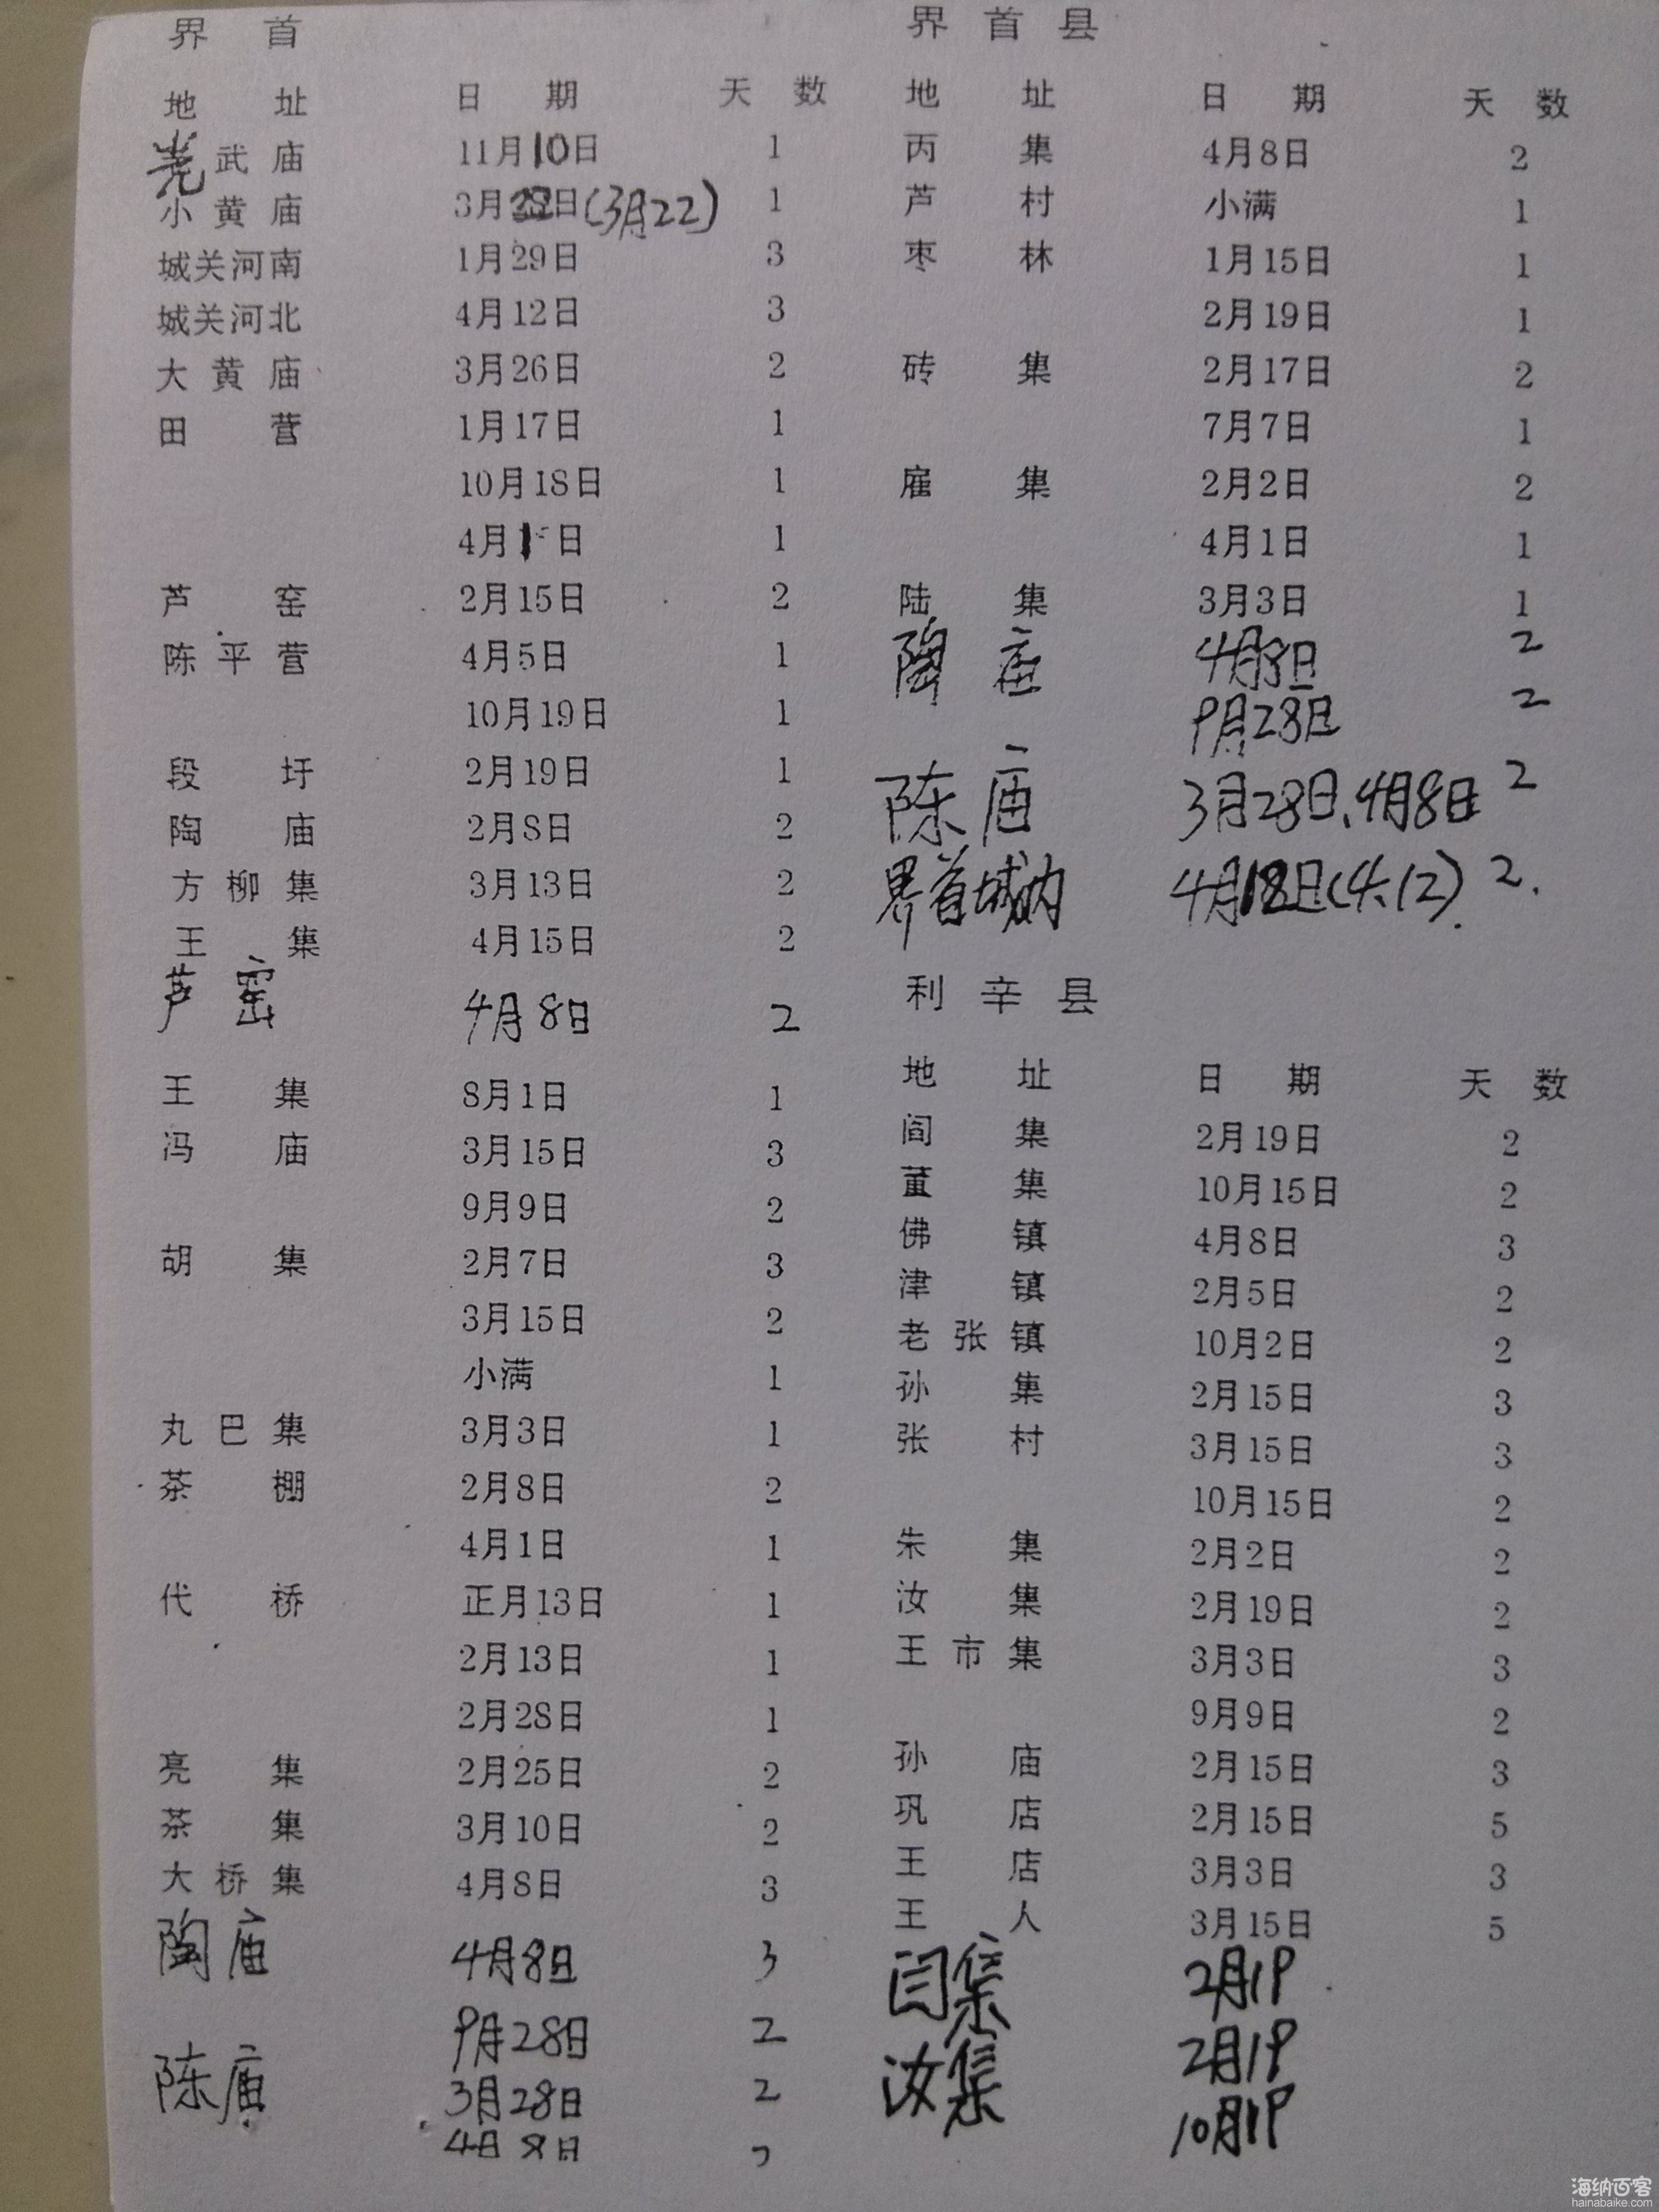 界首
地址 日期 天数
光武庙 11月10日 1
小黄庙 3月22日(3月22) 1
城关河南 1月29日 3
城关河北 4月12日 3
大黄庙 3月26日 2
田营 1月17日 1
10月18日 1
4月1日 1
芦窑 2月15日 2
陈平营 4月5日 1
10月19日 1
段圩 2月19日 1
陶庙 2月8日 2
方柳集 3月13日 2
王集 4月15日 2
芦窑 4月8日 2
王集 8月1日 1
冯庙 3月15日 3
9月9日 2
胡集 2月7日 3
3月15日 2
小满 1
丸巴集 3月3日 1
茶棚 2月8日 2
4月1日 1
代桥 正月13日 1
2月13日 1
2月28日 1
亮集 2月25日 2
茶集 3月10日 2
大桥集 4月8日 3
陶庙 4月8日 3
9月28日 2
陈庙 3月28日 2
4月8日
界首县
地址 日期 天数
丙集 4月8日 2
芦村 小满 1
枣林 1月15日 1
2月19日 1
砖集 2月17日 2
7月7日 1
雇集 2月2日 2
4月1日 1
陆集 3月3日 1
陶庙 4月8日 2
9月28日 2
陈庙 3月28日、4月8日 2
界首城内 4月12日(4.12). 2.
利辛县
地址 日期 天数
阎集 2月19日 2
董集 10月15日 2
佛镇 4月8日 3
津镇 2月5日 2
老张镇 10月2日 2
孙集 2月15日 3
张村 3月15日 3
10月15日 2
朱集 2月2日 2
汝集 2月19日 2
王市集 3月3日 3
9月9日 2
孙庙 2月15日 3
巩店 2月15日 5
王店 3月3日 3
王人 3月15日 5
闫集 2月19
汝集 2月19
10月19
海纳百客
hainabaike.com